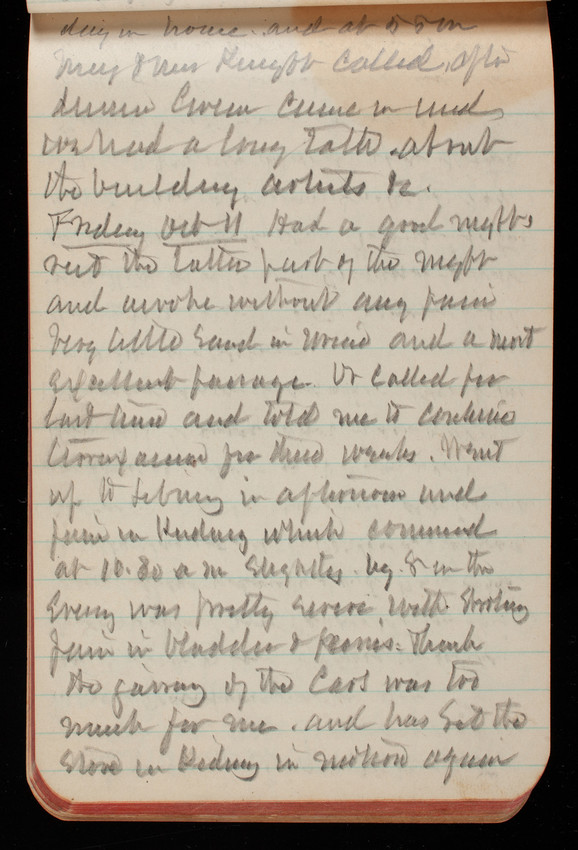 day in house. and at 5 P m
Mr & Mrs Knight called, after
dinner Green came in and
we had a long talk. about
the building artists &c.
Friday Oct 11 Had a good nights
rest the latter part of the night
and awoke without any pain
Very little sand in urine and a most
excellent passage. Dr called for
last time and told me to continue
for three weeks. Went
up to library in afternoon and
pain in Kidney which commenced
at 10.30 a m slightly. by 8 in the
Eveng was pretty severe with shooting
pain in bladder & penis. Think
the jarring of the Cars was too
much for me. and has set the
stone in Kidney in motion again